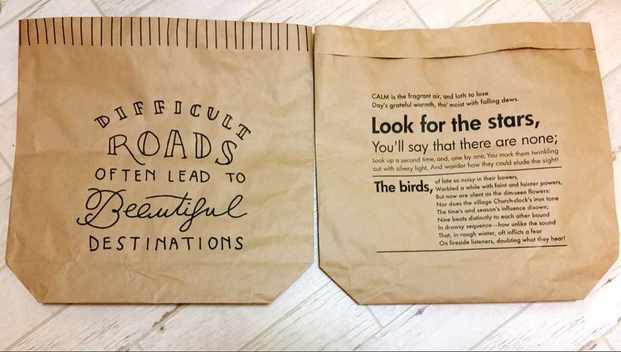 DIFFICULT
ROADS
OFTEN LEAD TO
Beautiful
DESTINATIONS
CALM is the fragrant air, and loth to lose
Day's grateful warmth, tho' moist with falling dews.
Look for the stars,
You'll say that there are none;
Look up a second time, and, one by one, You mark them twinkling
out with silvery light, And wonder how they could elude the sight!
The birds, of late so noisy in their bowers,
Warbled a while with faint and fainter powers,
But now are silent as the dim-seen flowers:
Nor does the village Church-clock's iron tone
The time's and season's influence disown;
Nine beats distinctly to each other bound
In drowsy sequence—how unlike the sound
That, in rough winter, oft inflicts a fear
On fireside listeners, doubting what they hear!